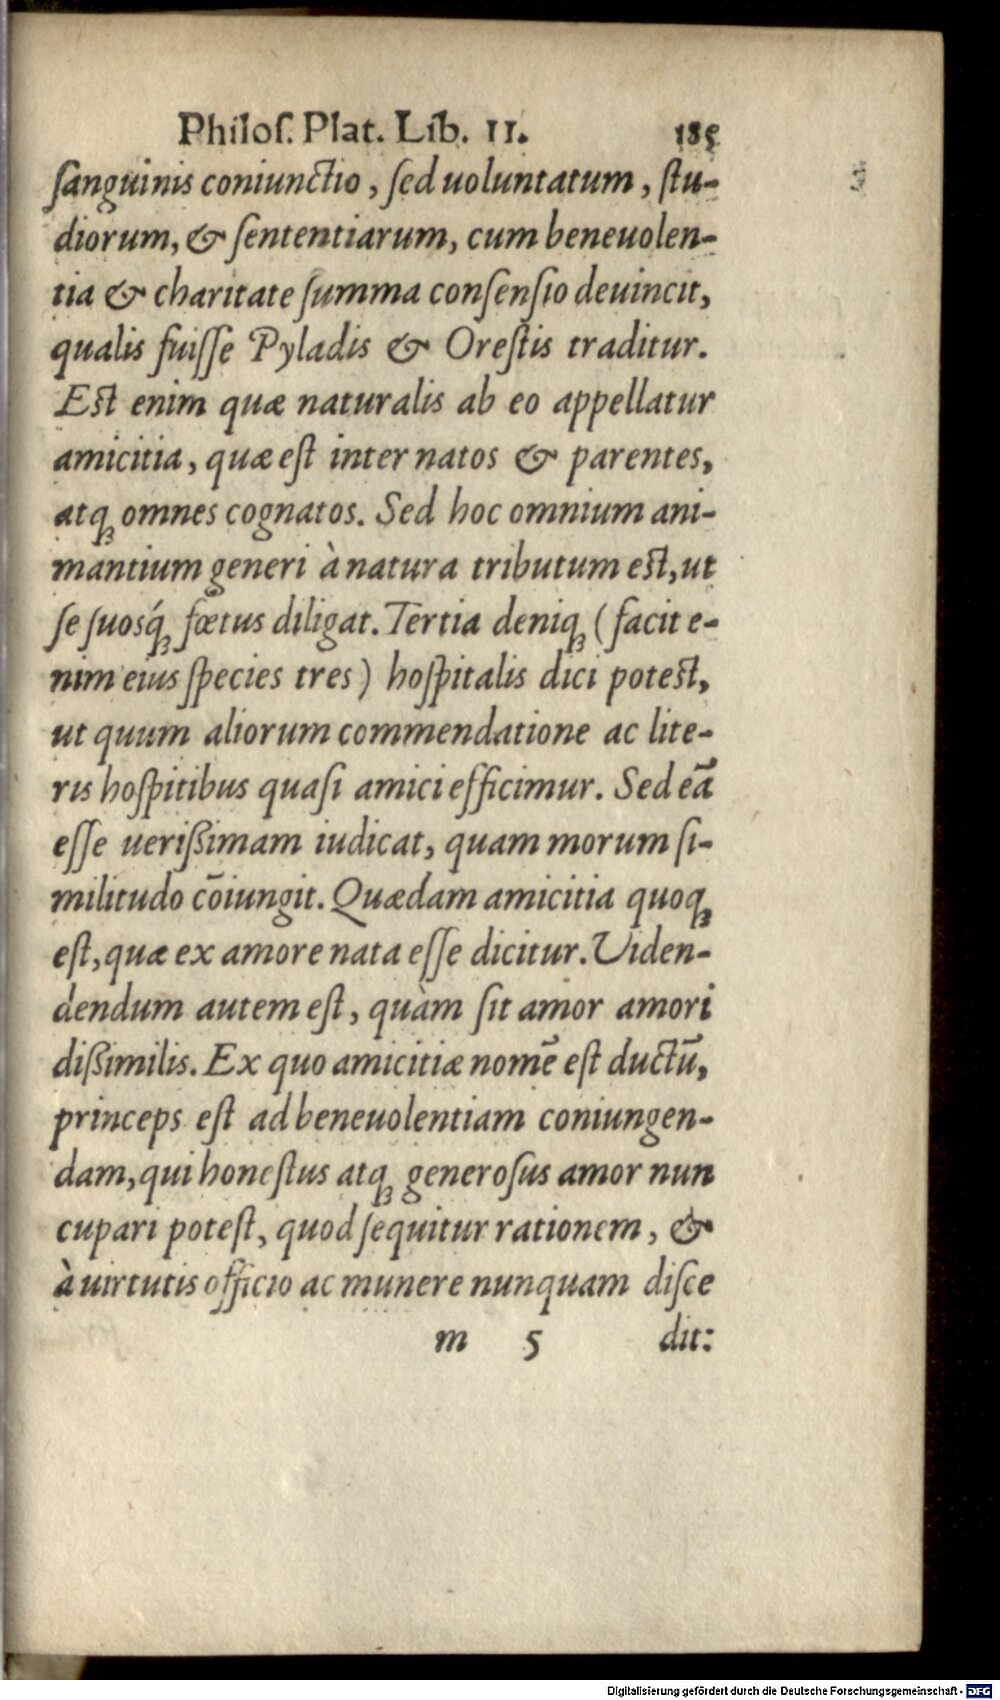 Philoſ. Plat. Lib. II. 185
ſanguinis coniunctio, ſed uoluntatum, ſtu-
diorum, & ſententiarum, cum beneuolen-
tia & charitate ſumma conſenſio deuincit,
qualis fuiſſe Pyladis & Oreſtis traditur.
Est enim quæ naturalis ab eo appellatur
amicitia, quæ eſt inter natos & parentes,
atq; omnes cognatos. Sed hoc omnium ani-
mantium generi à natura tributum est, ut
ſe ſuosq́; fœtus diligat. Tertia deniq; (facit e-
nim eius ſpecies tres) hoſpitalis dici potest,
ut quum aliorum commendatione ac lite-
ris hoſpitibus quaſi amici efficimur. Sed eā
eſſe ueriſsimam iudicat, quam morum ſi-
militudo cōiungit. Quædam amicitia quoq;
eſt, quæ ex amore nata eſſe dicitur. Uiden-
dendum autem eſt, quàm ſit amor amori
diſsimilis. Ex quo amicitiæ nomē eſt ductū,
princeps eſt ad beneuolentiam coniungen-
dam, qui honeſtus atq; generoſus amor nun
cupari poteſt, quod ſequitur rationem, &
à uirtutis officio ac munere nunquam diſce
m 5 dit:
Digitalisierung gefördert durch die Deutsche Forschungsgemeinschaft - DFG